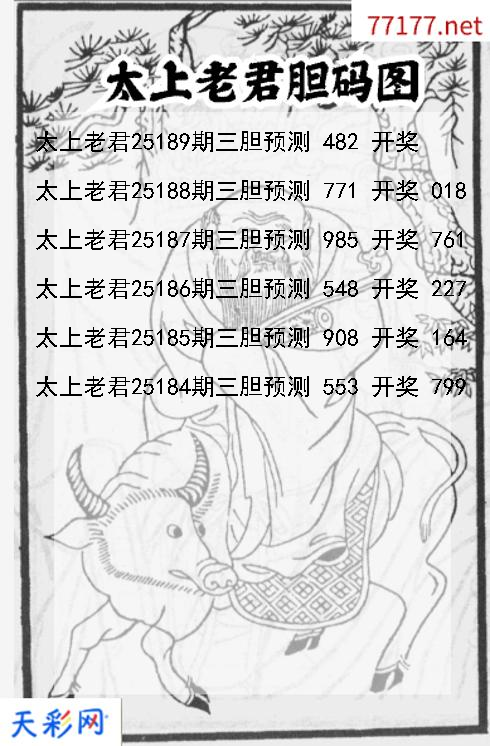 77177.net
太上老君胆码图
太上老君25189期三胆预测 482 开奖
太上老君25188期三胆预测 771 开奖 018
太上老君25187期三胆预测 985 开奖 761
太上老君25186期三胆预测 548 开奖 227
太上老君25185期三胆预测 908 开奖 164
太上老君25184期三胆预测 553 开奖 799
天彩网